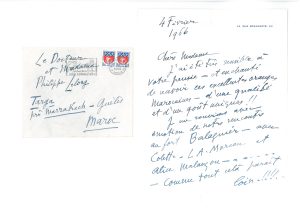 Le Docteur
et Madame
Philippe
Targa
près Marrakech - Guéliz
Maroc
4 Février
1966
Chère Madame
J'ai été très sensible à
votre pensée - et enchanté
de recevoir ces excellentes oranges
Marocaines - d'une qualité
et d'un goût uniques!!
Je me souviens avec
émotion de notre rencontre
au fort Balaguier - avec
Colette - L.A. Moreau et
Alice
Comme tout cela paraît
loin - !!!!